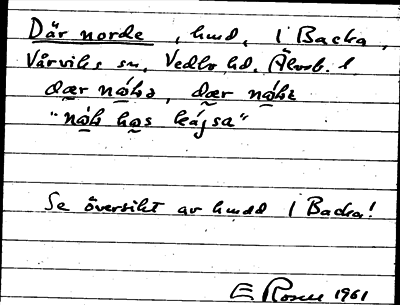 Där norde, hmd, 1 Backa,
Vårviks sn, Vedbo hd, Älvsb. l
dær nǫ́kə, dær nǫ́kə
"nǫ́k hǫs kájsa"
Se översikt av hmdd 1 Backa!
E Rosen 1961